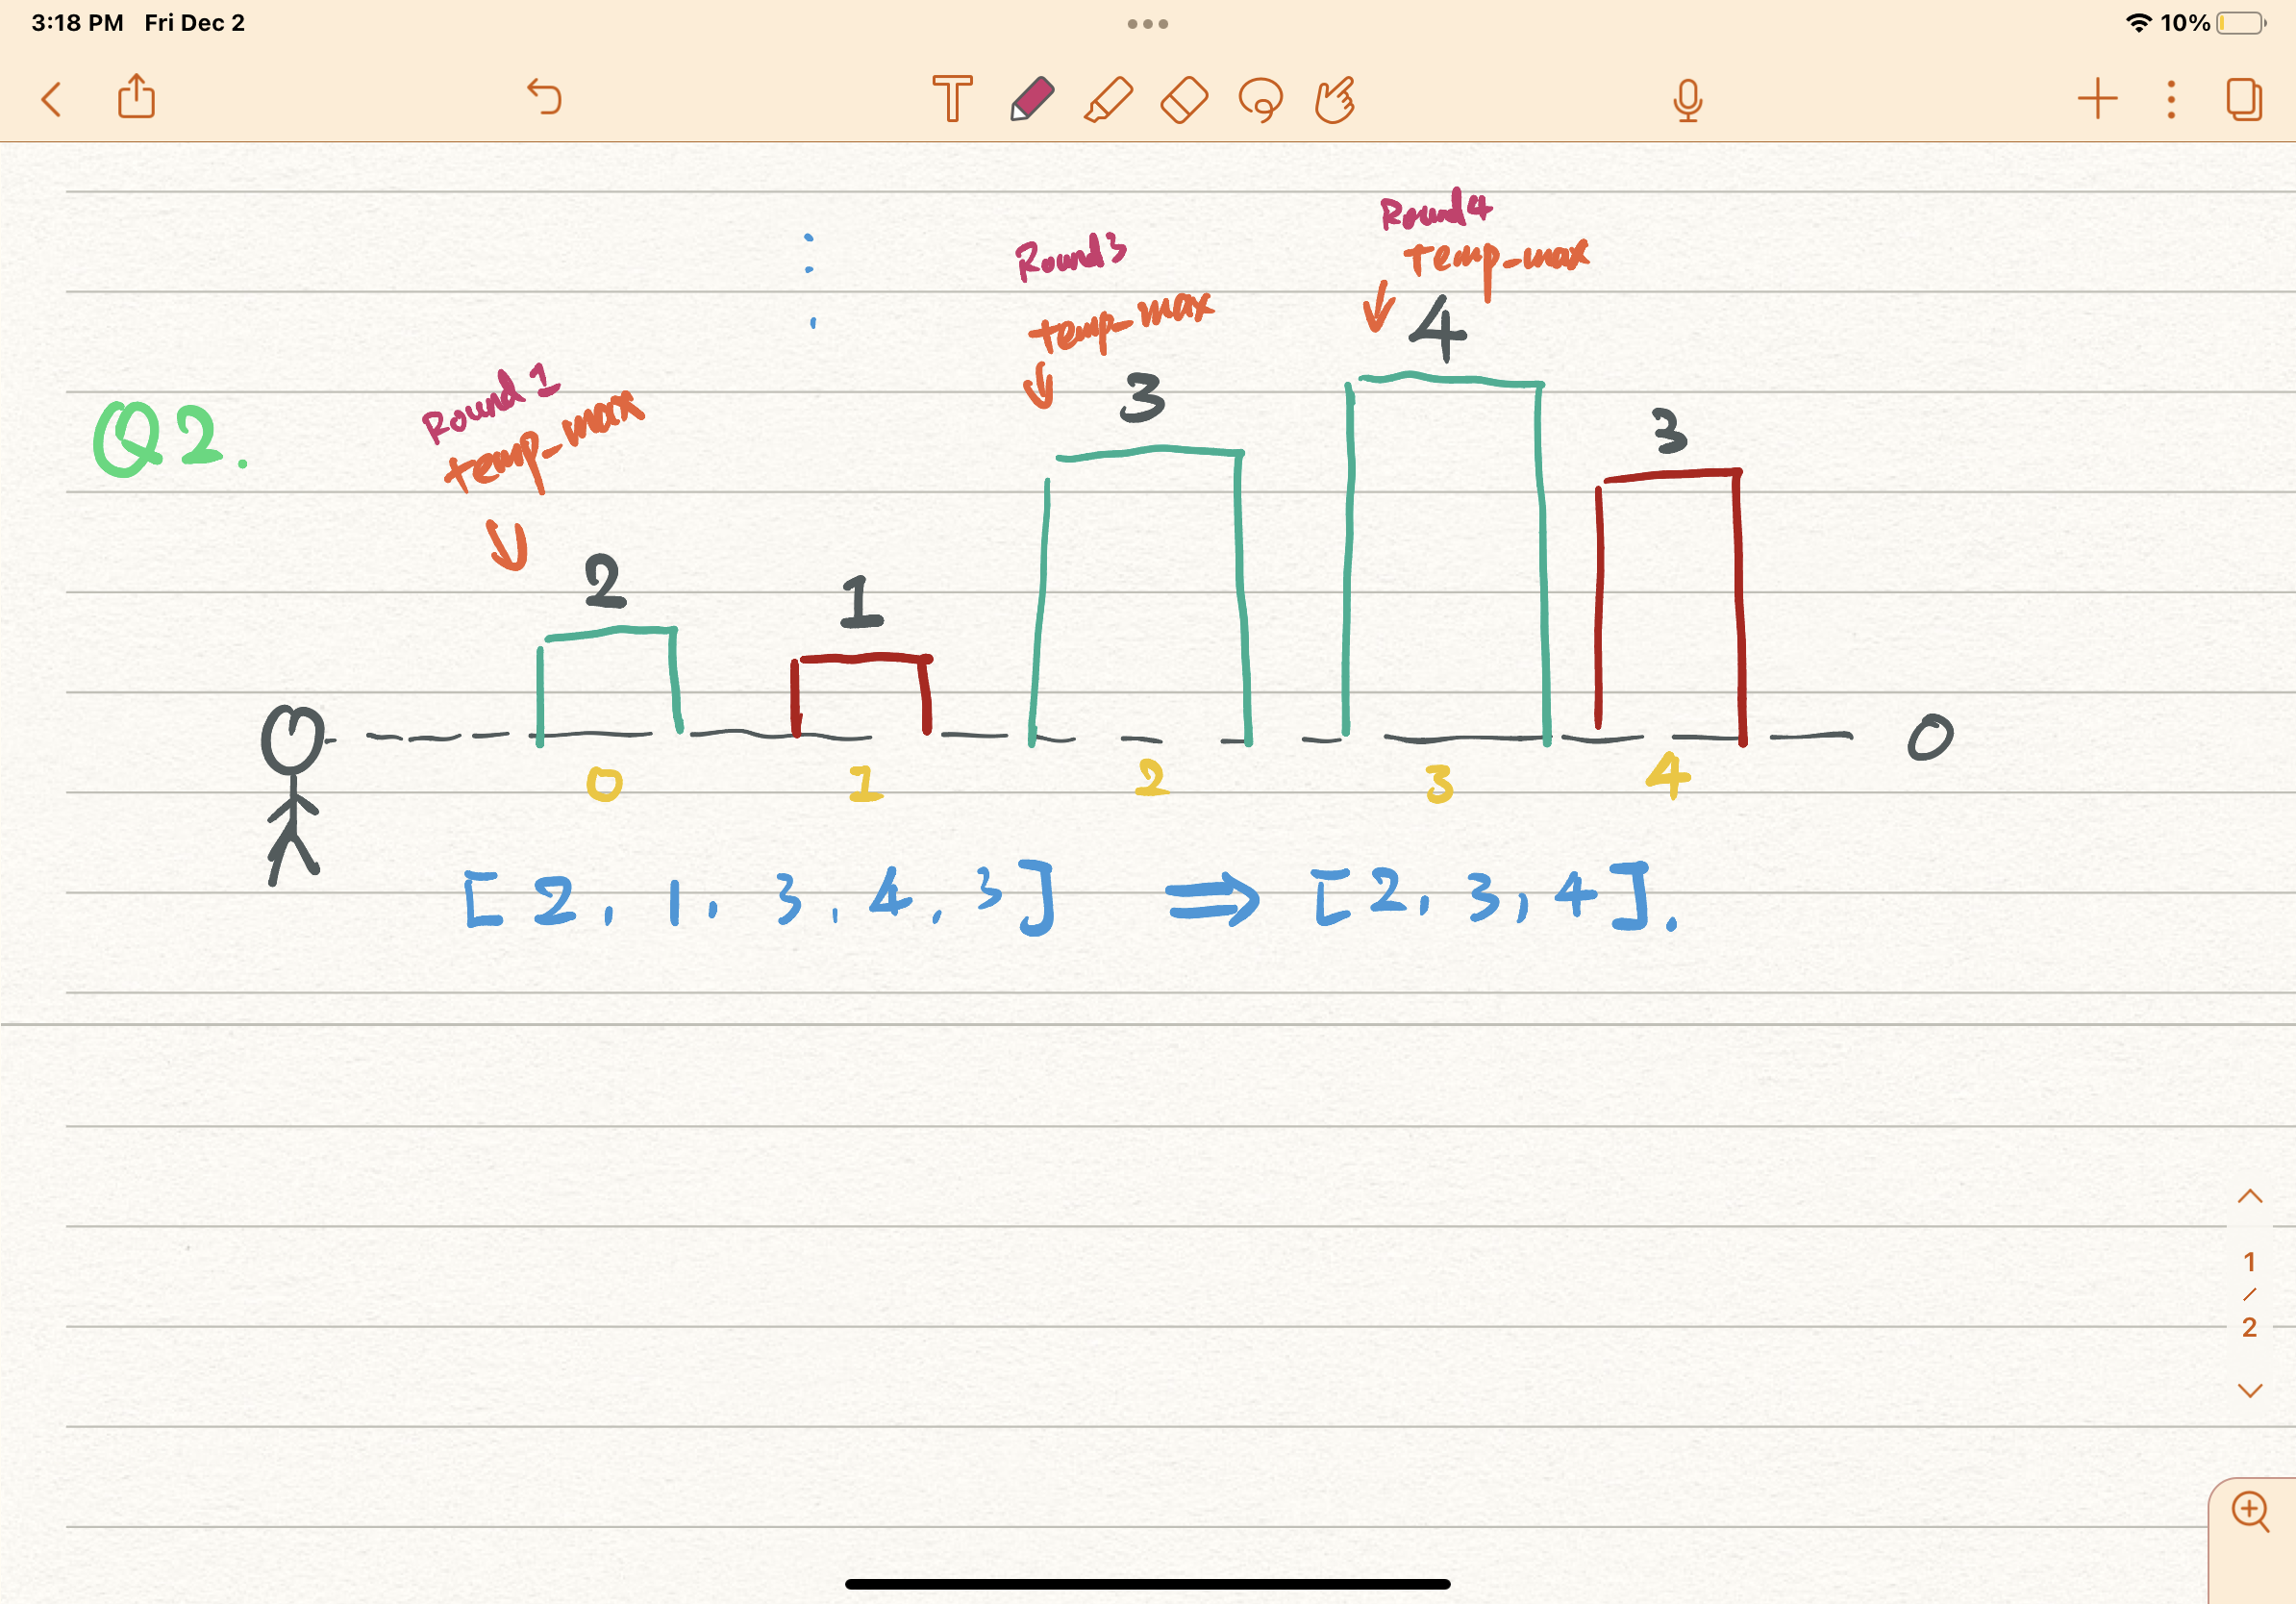 3:18 PM Fri Dec 2
10%
T
Round4
temp_max
Round3
temp_max
4
Round 1
temp_max
3
3
Q2.
2
1
0
1
2
3
4
0
[2, 1, 3, 4, 3] ⇒ [2, 3, 4].
1
/
2